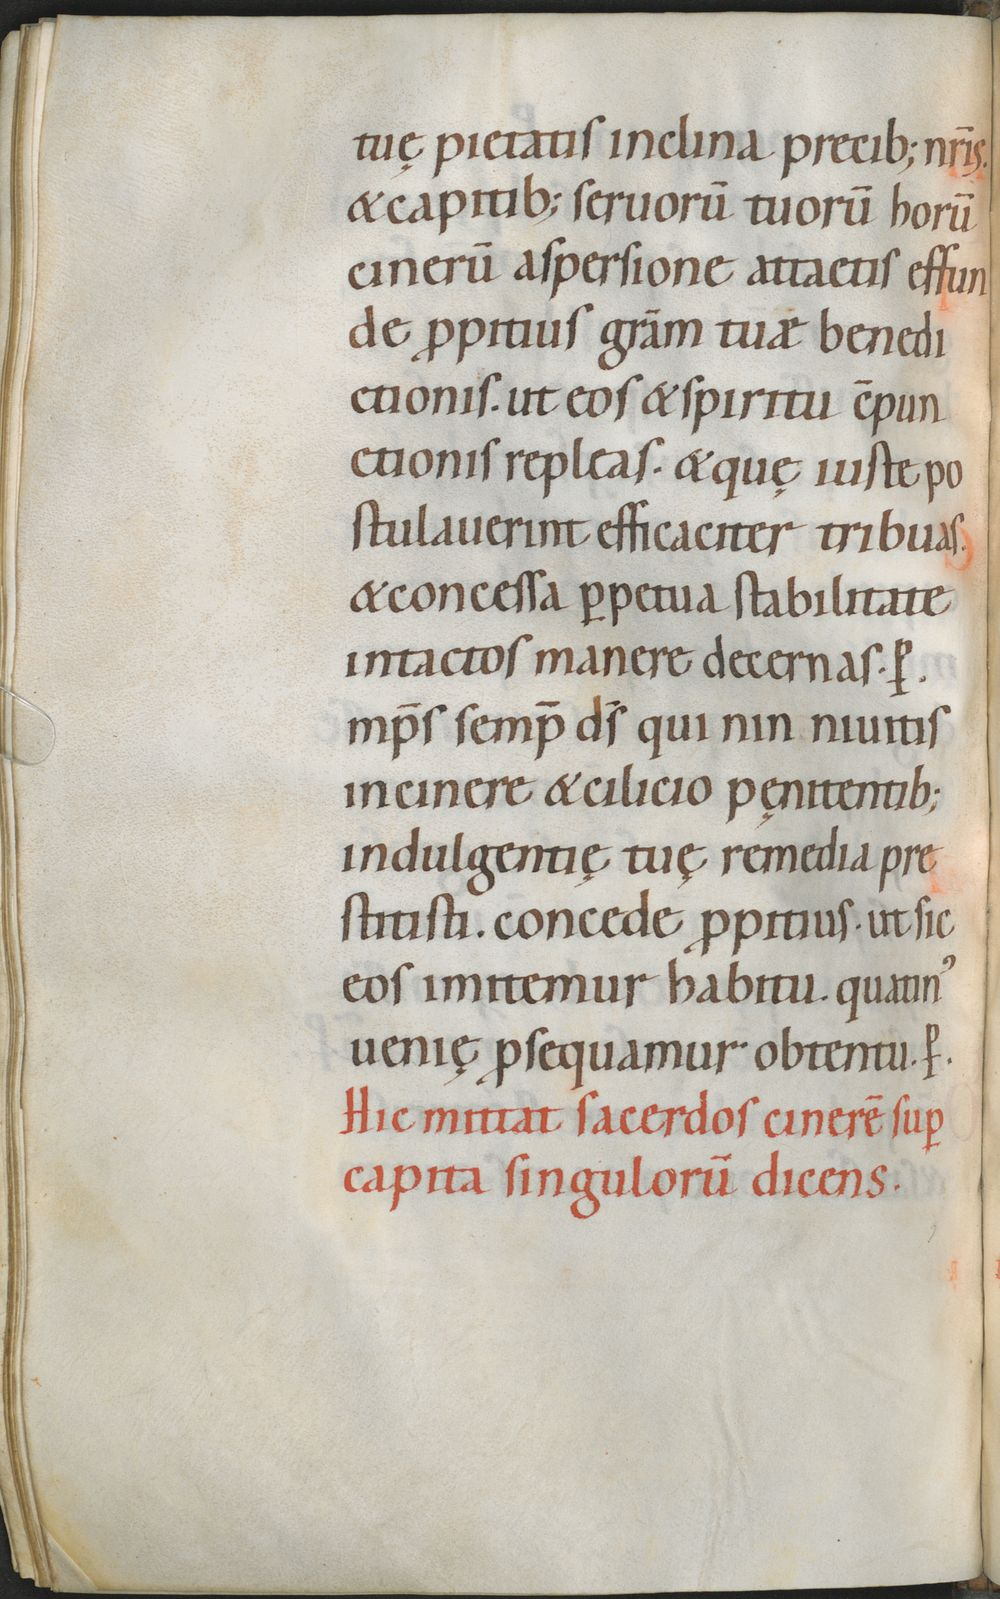 tuę pietatis inclina precib; nr̄is.
&capitib; seruorū tuorū horū
cinerū aspersione attactis effun
de ꝓpitius grām tuæ benedi
ctionis. ut eos & spiritu cōpun
ctionis repleas. & quę iuste po
stulauerint efficaciter tribuas.
& concessa ꝑpetua stabilitate
intactos manere decernas. ꝑ.
mp̄s semp̄ ds̄ qui nin niuitis
in cinere & cilicio pęnitentib;
indulgentię tuę remedia pre
stitisti. concede ꝓpitius. ut sic
eos imitemur habitu. quatinꝰ
uenię ꝓsequamur obtentu. ꝑ.
Hic mittat sacerdos cinerē suꝑ
capita singulorū dicens.